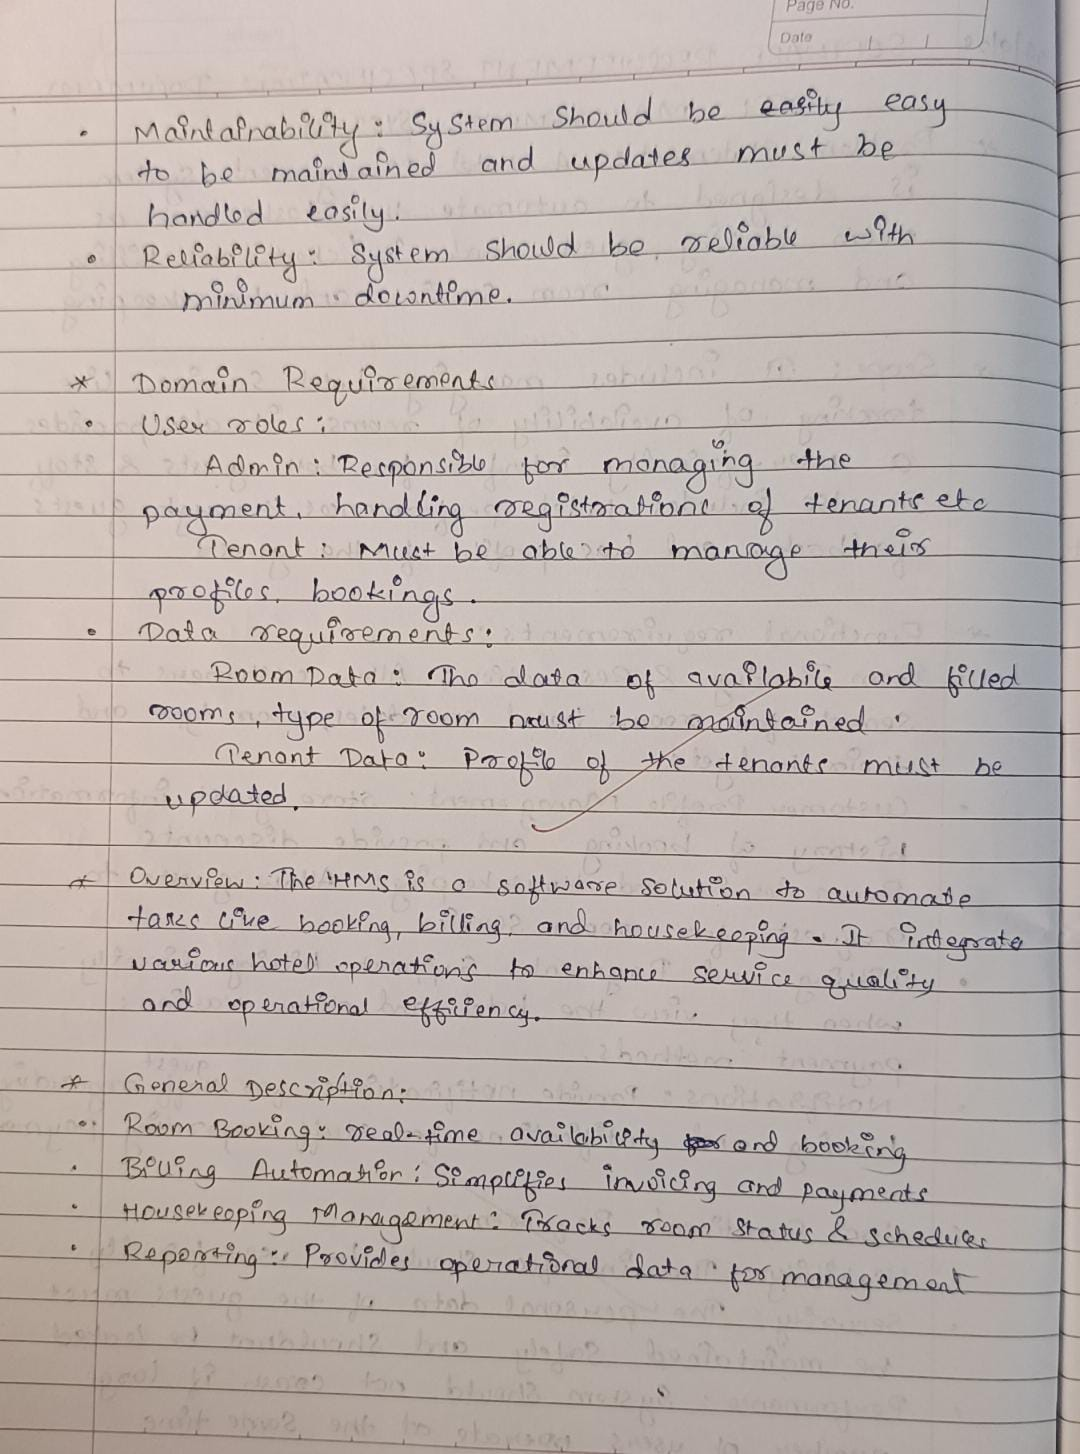 Page No.
Date
• Maintainability : System should be easily easy
to be maintained and updates must be
handled easily.
• Reliability : System should be reliable with
minimum downtime.
* Domain Requirements
• User roles :
Admin : Responsible for managing the
payment, handling registrations of tenants etc
Tenant : Must be able to manage their
profiles, bookings.
• Data requirements :
Room Data : The data of availabile and filled
rooms, type of room must be maintained.
Tenant Data : Profile of the tenants must be
updated.
* Overview : The HMS is a software solution to automate
tasks like booking, billing, and housekeeping. It integrate
various hotel operations to enhance service quality
and operational efficiency.
* General Description :
• Room Booking : real-time availability for and booking
• Billing Automation : Simplifies invoicing and payments
• Housekeeping Management : Tracks room status & schedules
• Reporting : Provides operational data for management